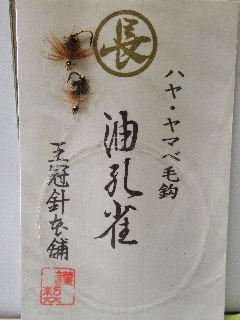 長
ハヤ・ヤマベ毛鈎
油孔雀
王冠針本舗